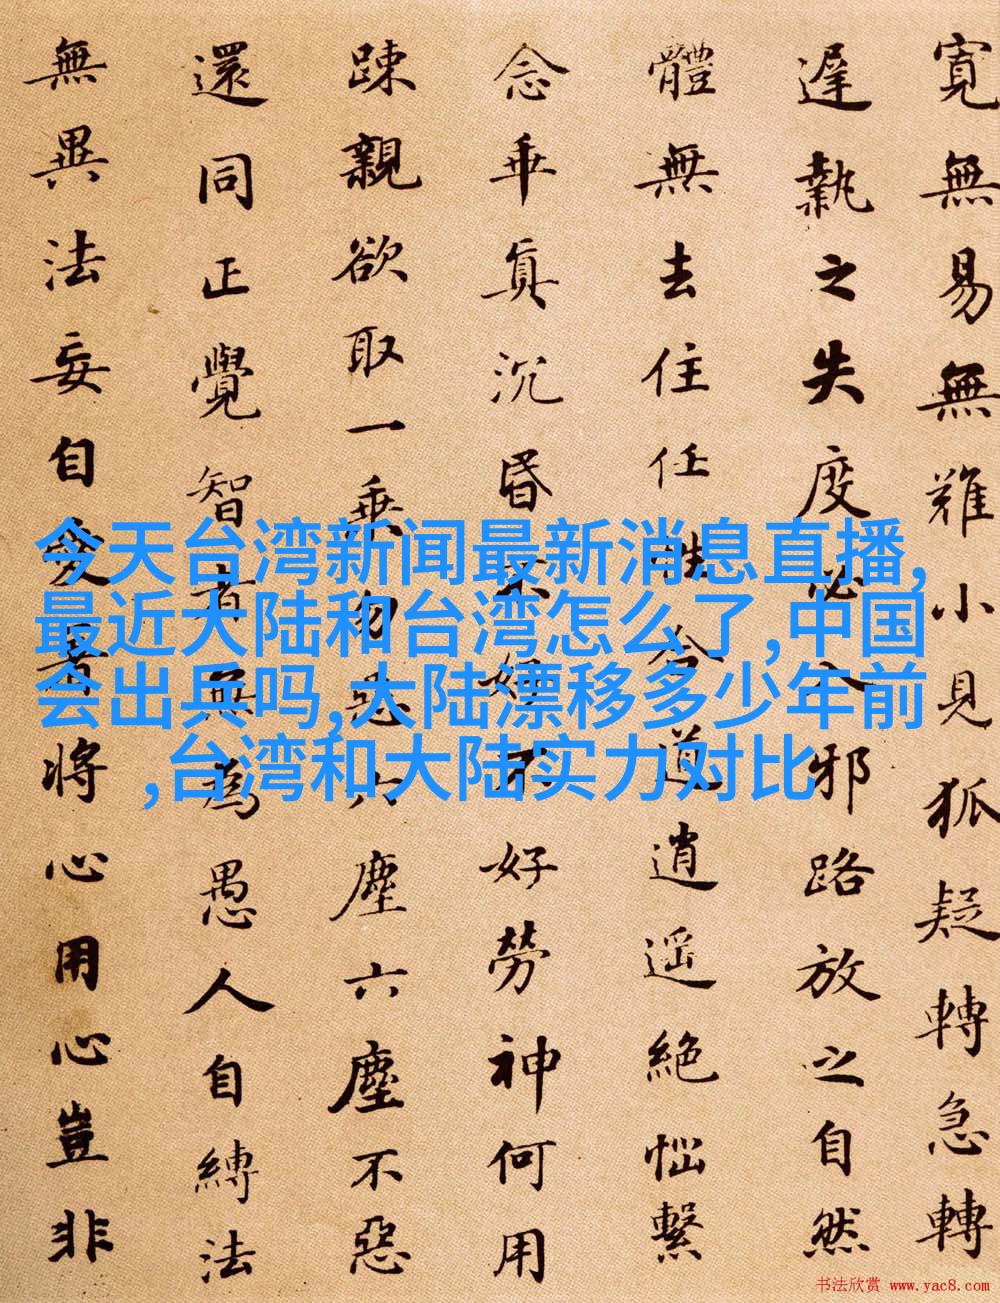 寬無易無難小見狐疑轉急轉
遲執之失度必入邪路放之自然
體無去住任性合道逍遥絶惱繫
念乖真沉昏不好不好勞神何用
踈親欲取一乘勿惡六塵六塵不惡
還同正覺智者無為愚人自縛法
無異法妄自愛著將心用心豈非
今天台湾新闻最新消息直播,
最近大陆和台湾怎么了,中国
会出兵吗,大陆漂移多少年前
,台湾和大陆实力对比
书法欣赏 www.yac8.com